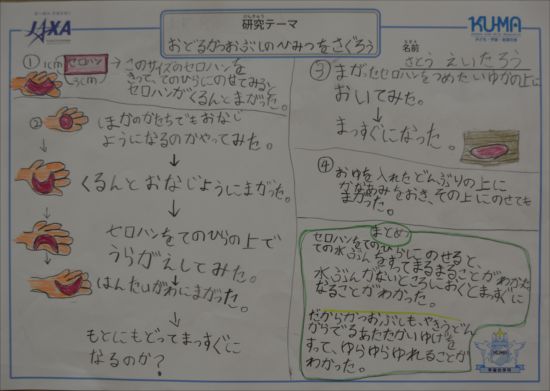 JAXA
けんきゅう
研究テーマ
おどるかつおぶしのひみつをさぐろう
KU-MA
子ども・宇宙・未来の会
なまえ
名前 さとう えいたろう
① 1cm セロハン 3cm
→ このサイズのセロハンを
きって、てのひらにのせてみると
セロハンがくるんとまがった。
② ほかのかたちでもおなじ
ようになるのかやってみた。
↓
くるんと おなじようにまがった。
↓
セロハンをてのひらの上で
うらがえしてみた。
↓
はんたいがわにまがった。
↓
もとにもどってまっすぐに
なるのか?
③ まがったセロハンをつめたいゆかの上に
おいてみた。
↓
まっすぐになった。
④ おゆを入れたどんぶりの上に
かなあみをおき、その上にのせても
まがった。
まとめ
セロハンをてのひらにのせると、
ての水ぶんをすってまるまることがわかった
水ぶんがないところにおくとまっすぐに
なることがわかった。
だからかつおぶしも、やきうどん
からでるあたたかいゆげを
すって、ゆらゆらゆれることが
わかった。
KU-MA